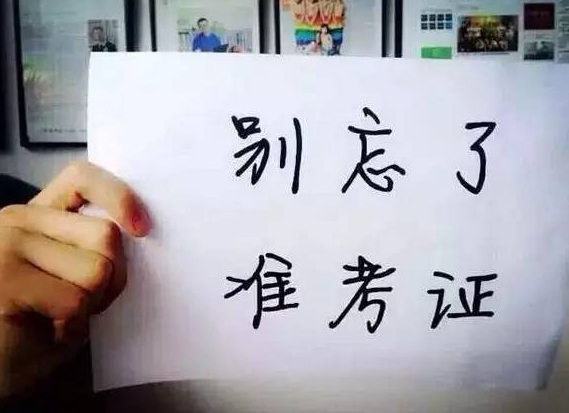 别忘了
准考证